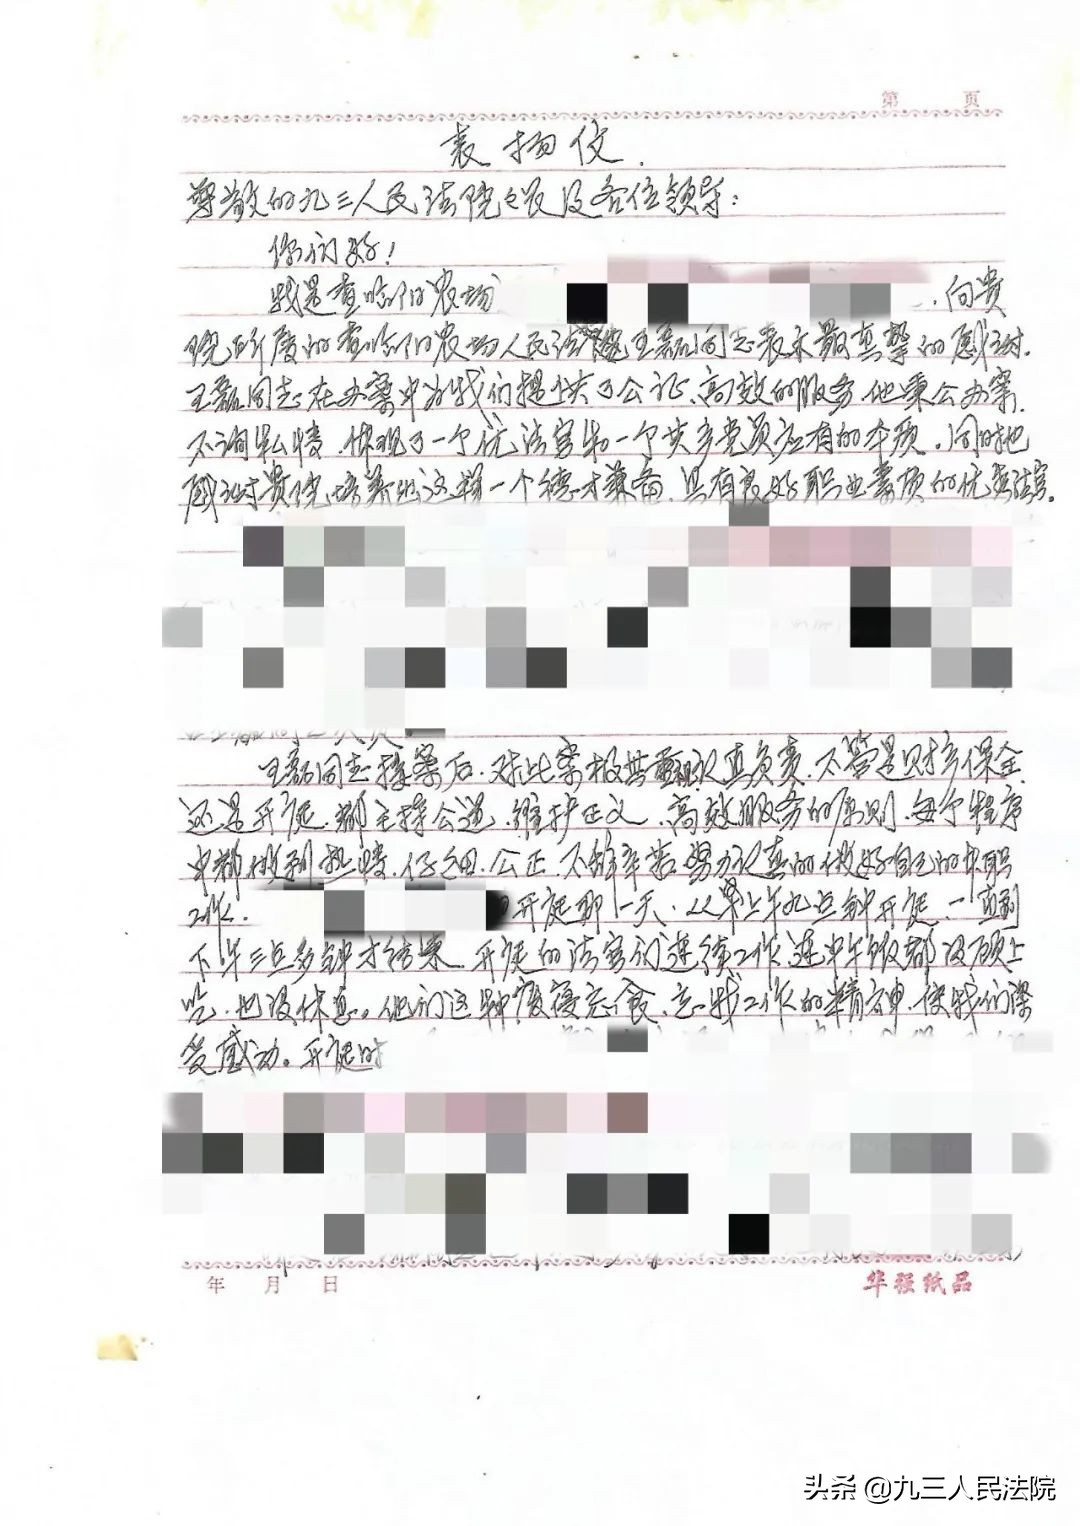 第 页
表扬信.
尊敬的九三人民法院院长及各位领导：
你们好！
我是查哈阳农场 . 向贵
院所属的查哈阳农场人民法庭王磊同志表示最真挚的感谢.
王磊同志在办案中为我们提供了公证、高效的服务,他秉公办案,
不询私情,体现了一个优法官和一个共产党员应有的本质.同时也
感谢贵院培养出这样一个德才兼备,具有良好职业素质的优秀法官.
王磊同志接案后,对此案极其认真负责,不管是财产保全,
还是开庭,都主持公道,维护正义,高效服务的原则,每个程序
中都做到热情、仔细、公正、不辞辛苦努力认真的做好自己的本职
工作. 开庭那一天,从早上午九点钟开庭,一直到
下午三点多钟才结束,开庭的法官们连续工作,连中午饭都没顾上
吃,也没休息。他们这种废寝忘食,忘我工作的精神,使我们深
受感动。开庭时
年 月 日 华强纸品
头条 @九三人民法院